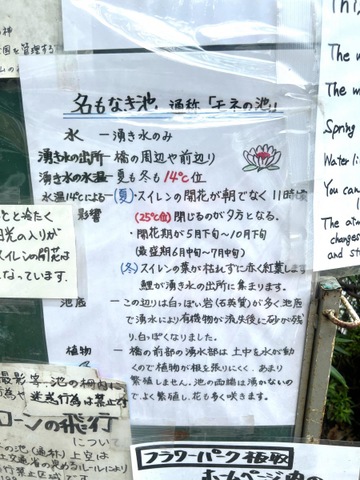 名もなき池、通称「モネの池」
水 ー湧き水のみ
湧き水の出所ー橋の周辺や前辺り
湧き水の水温ー夏も冬も14℃位
水温14℃による ー(夏)・スイレンの開花が朝でなく11時頃
影響 (25℃位) 閉じるのが夕方となる。
・開花期が5月下旬〜10月下旬
(最盛期6中旬〜7中旬)
(冬)スイレンの葉が枯れずに赤く紅葉し
鯉が湧き水の出所に集まります。
池底 ーこの辺りは白っぽい岩(石英質)が多く池底
で湧水により有機物が流失後に砂が残
り、白っぽくなりました。
植物 ー橋の前部の湧水部は土中を水が動
くので植物が根を張りにくく、あまり
繁殖しません。池の両端は湧かないの
でよく繁殖し、花も多く咲きます。
を管理する
と冷たく
光の入りが
スイレンの開花は
なっています.
撮影 客、池の柵内に
為や迷惑行為は禁止で
ローンの飛行
について
の池(通称)上空は
交通省の定めるルールにより
行禁止区域です
フラワーパーク板取
ホームページ内の
This
The w
The m
Spring
Water li
You can
The air
changes
and st